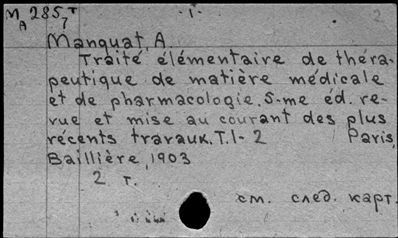 M 285 T
A 7
-1-
2
Manquat, A
Traité élémentaire de théra-
peutique de matière médicale
et de pharmacologie. 5-me éd. re-
vue et mise au courant des plus
récents travaux. T.1-2 Paris,
Baillière, 1903
2 т.
см. след. карт.